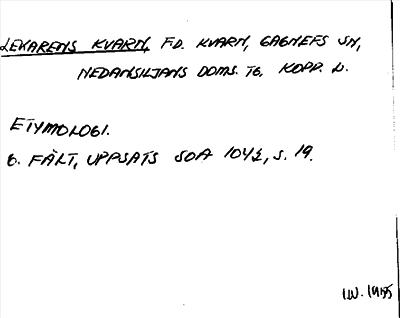 LEKARENS KVARN, F.D. KVARN, GAGNEFS SN,
NEDANSILJANS DOMS. TG. KOPP. L.
ETYMOLOGI.
G. FÄLT, UPPSATS SOA 1042, S. 19.
I.W. 1985